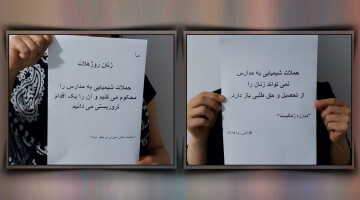 ما
زنان روژهلات
حملات شیمیایی به مدارس را
محکوم می کنیم و آن را یک اقدام
تروریستی می دانیم
حملات شیمیایی به مدارس
نمی تواند زنان را
از تحصیل و حق طلبی باز دارد
"مبارزه زندگیست"